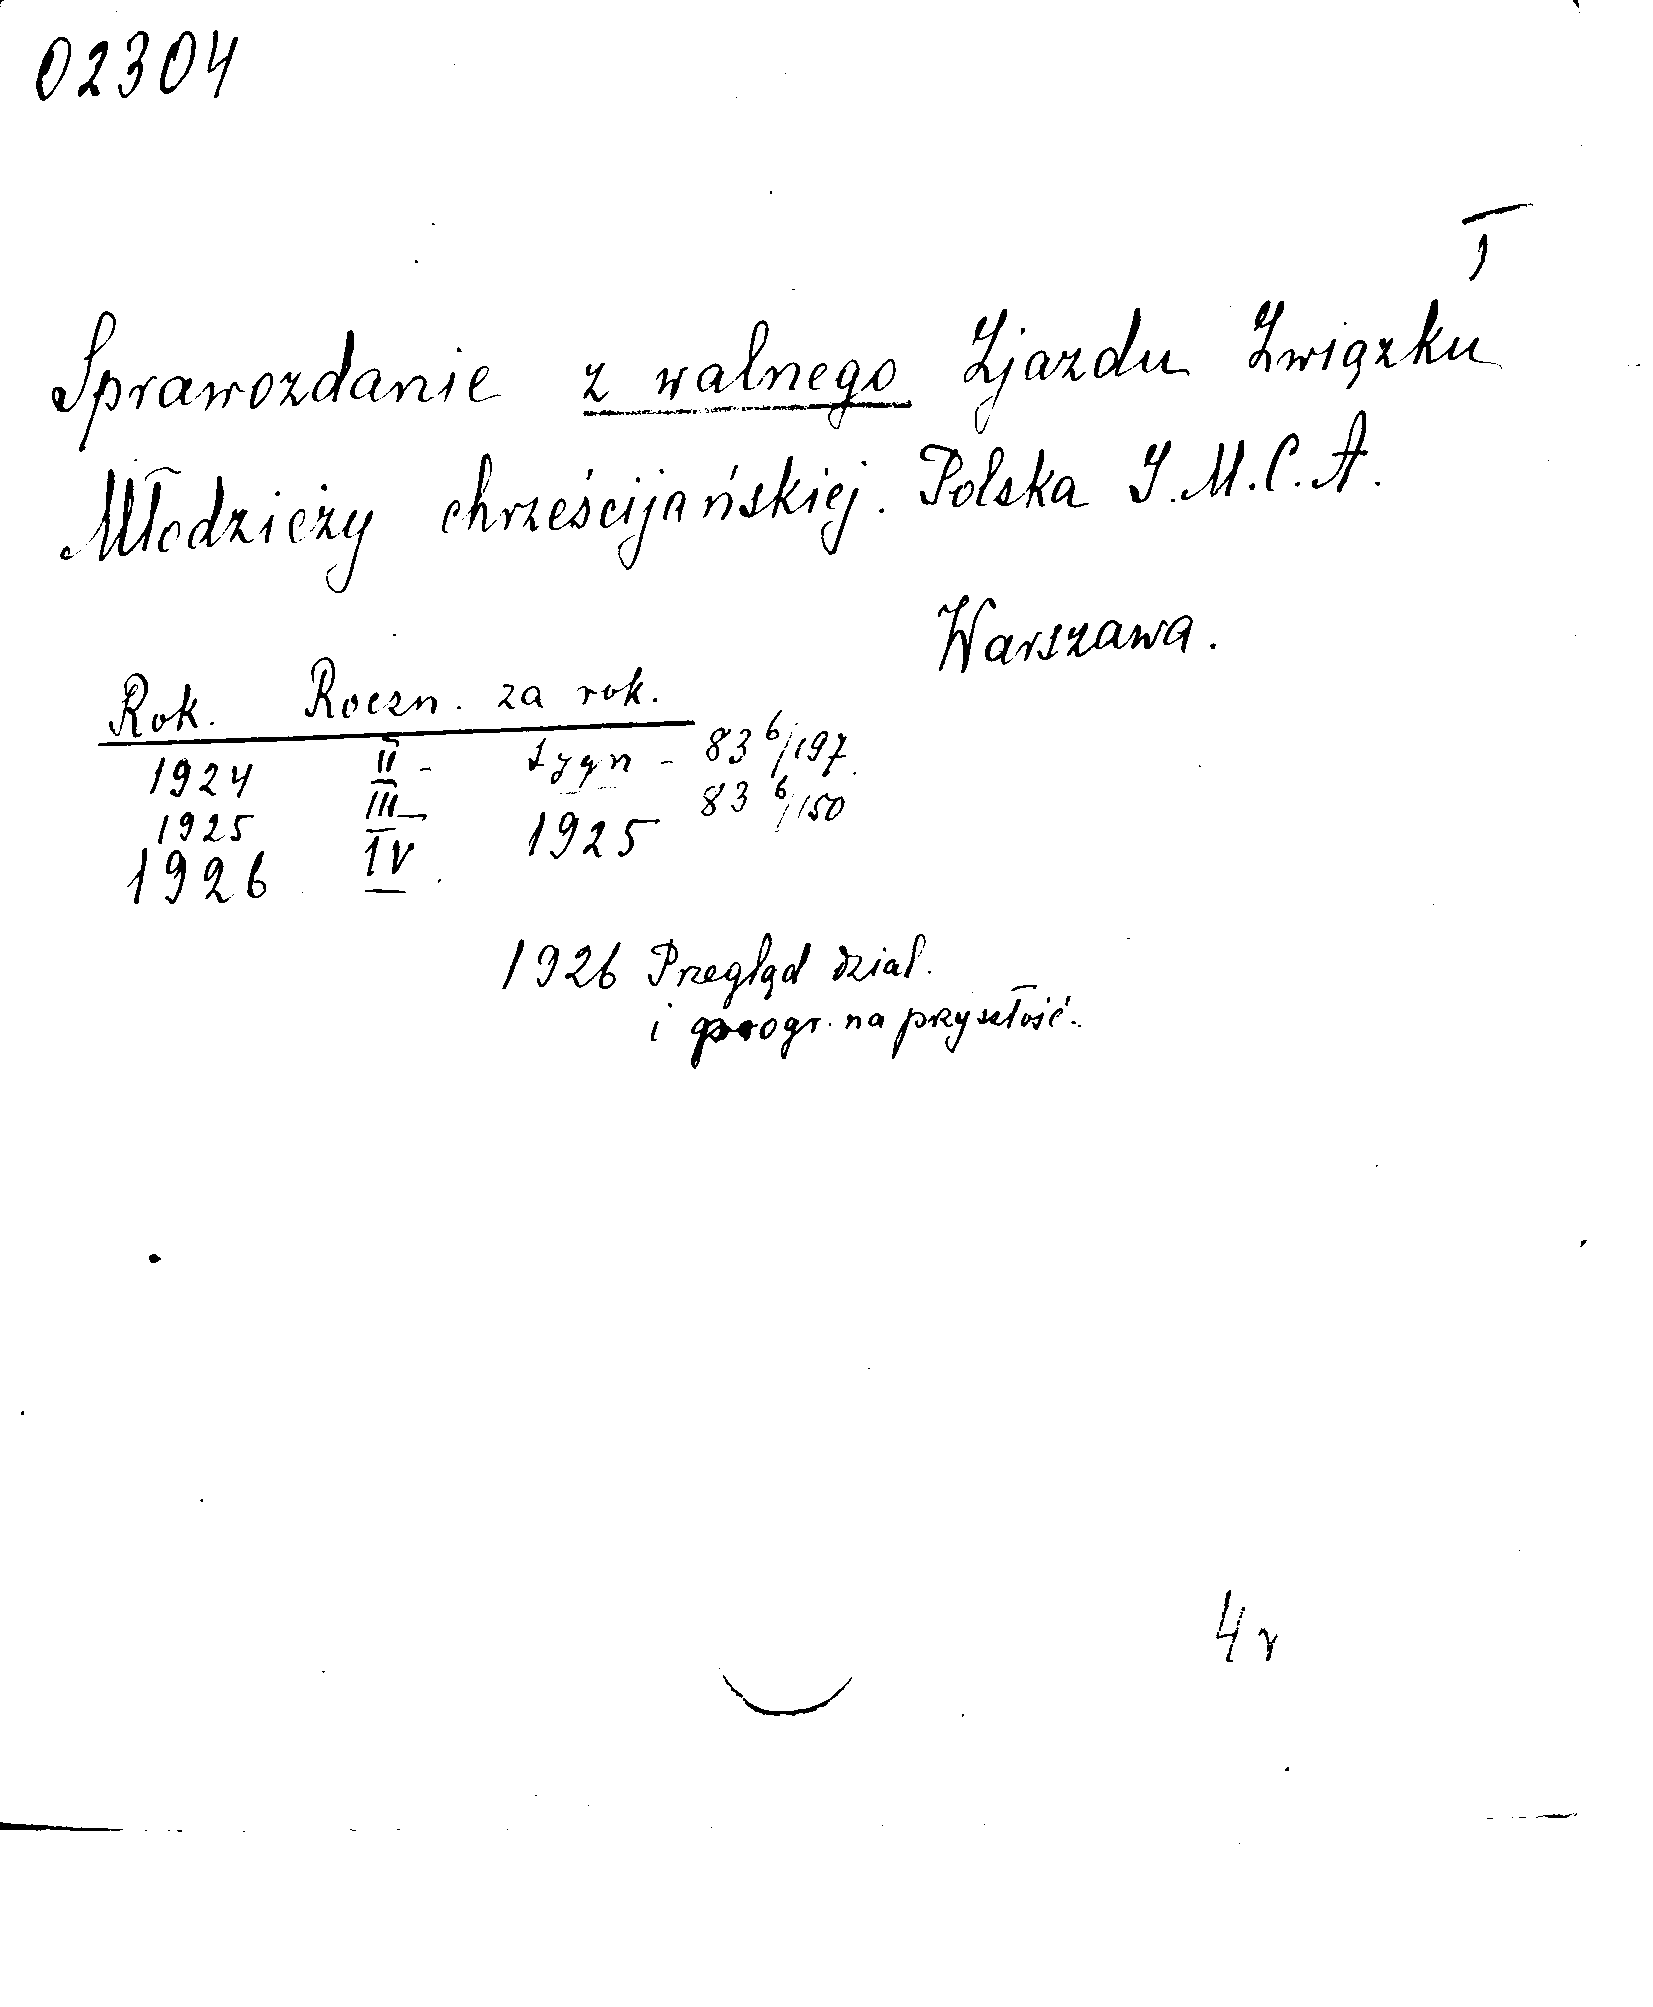 02304
I
Sprawozdanie z walnego Zjazdu Związku
Młodzieży chrześcijańskiej. Polska Y.M.C.A.
Warszawa.
Rok. Roczn. za rok.
1924 II - sygn - 83 6/197
1925 III 83 6/150
1926 IV 1925
1926 Przegląd dział.
i progr. na przyszłość.
4 r